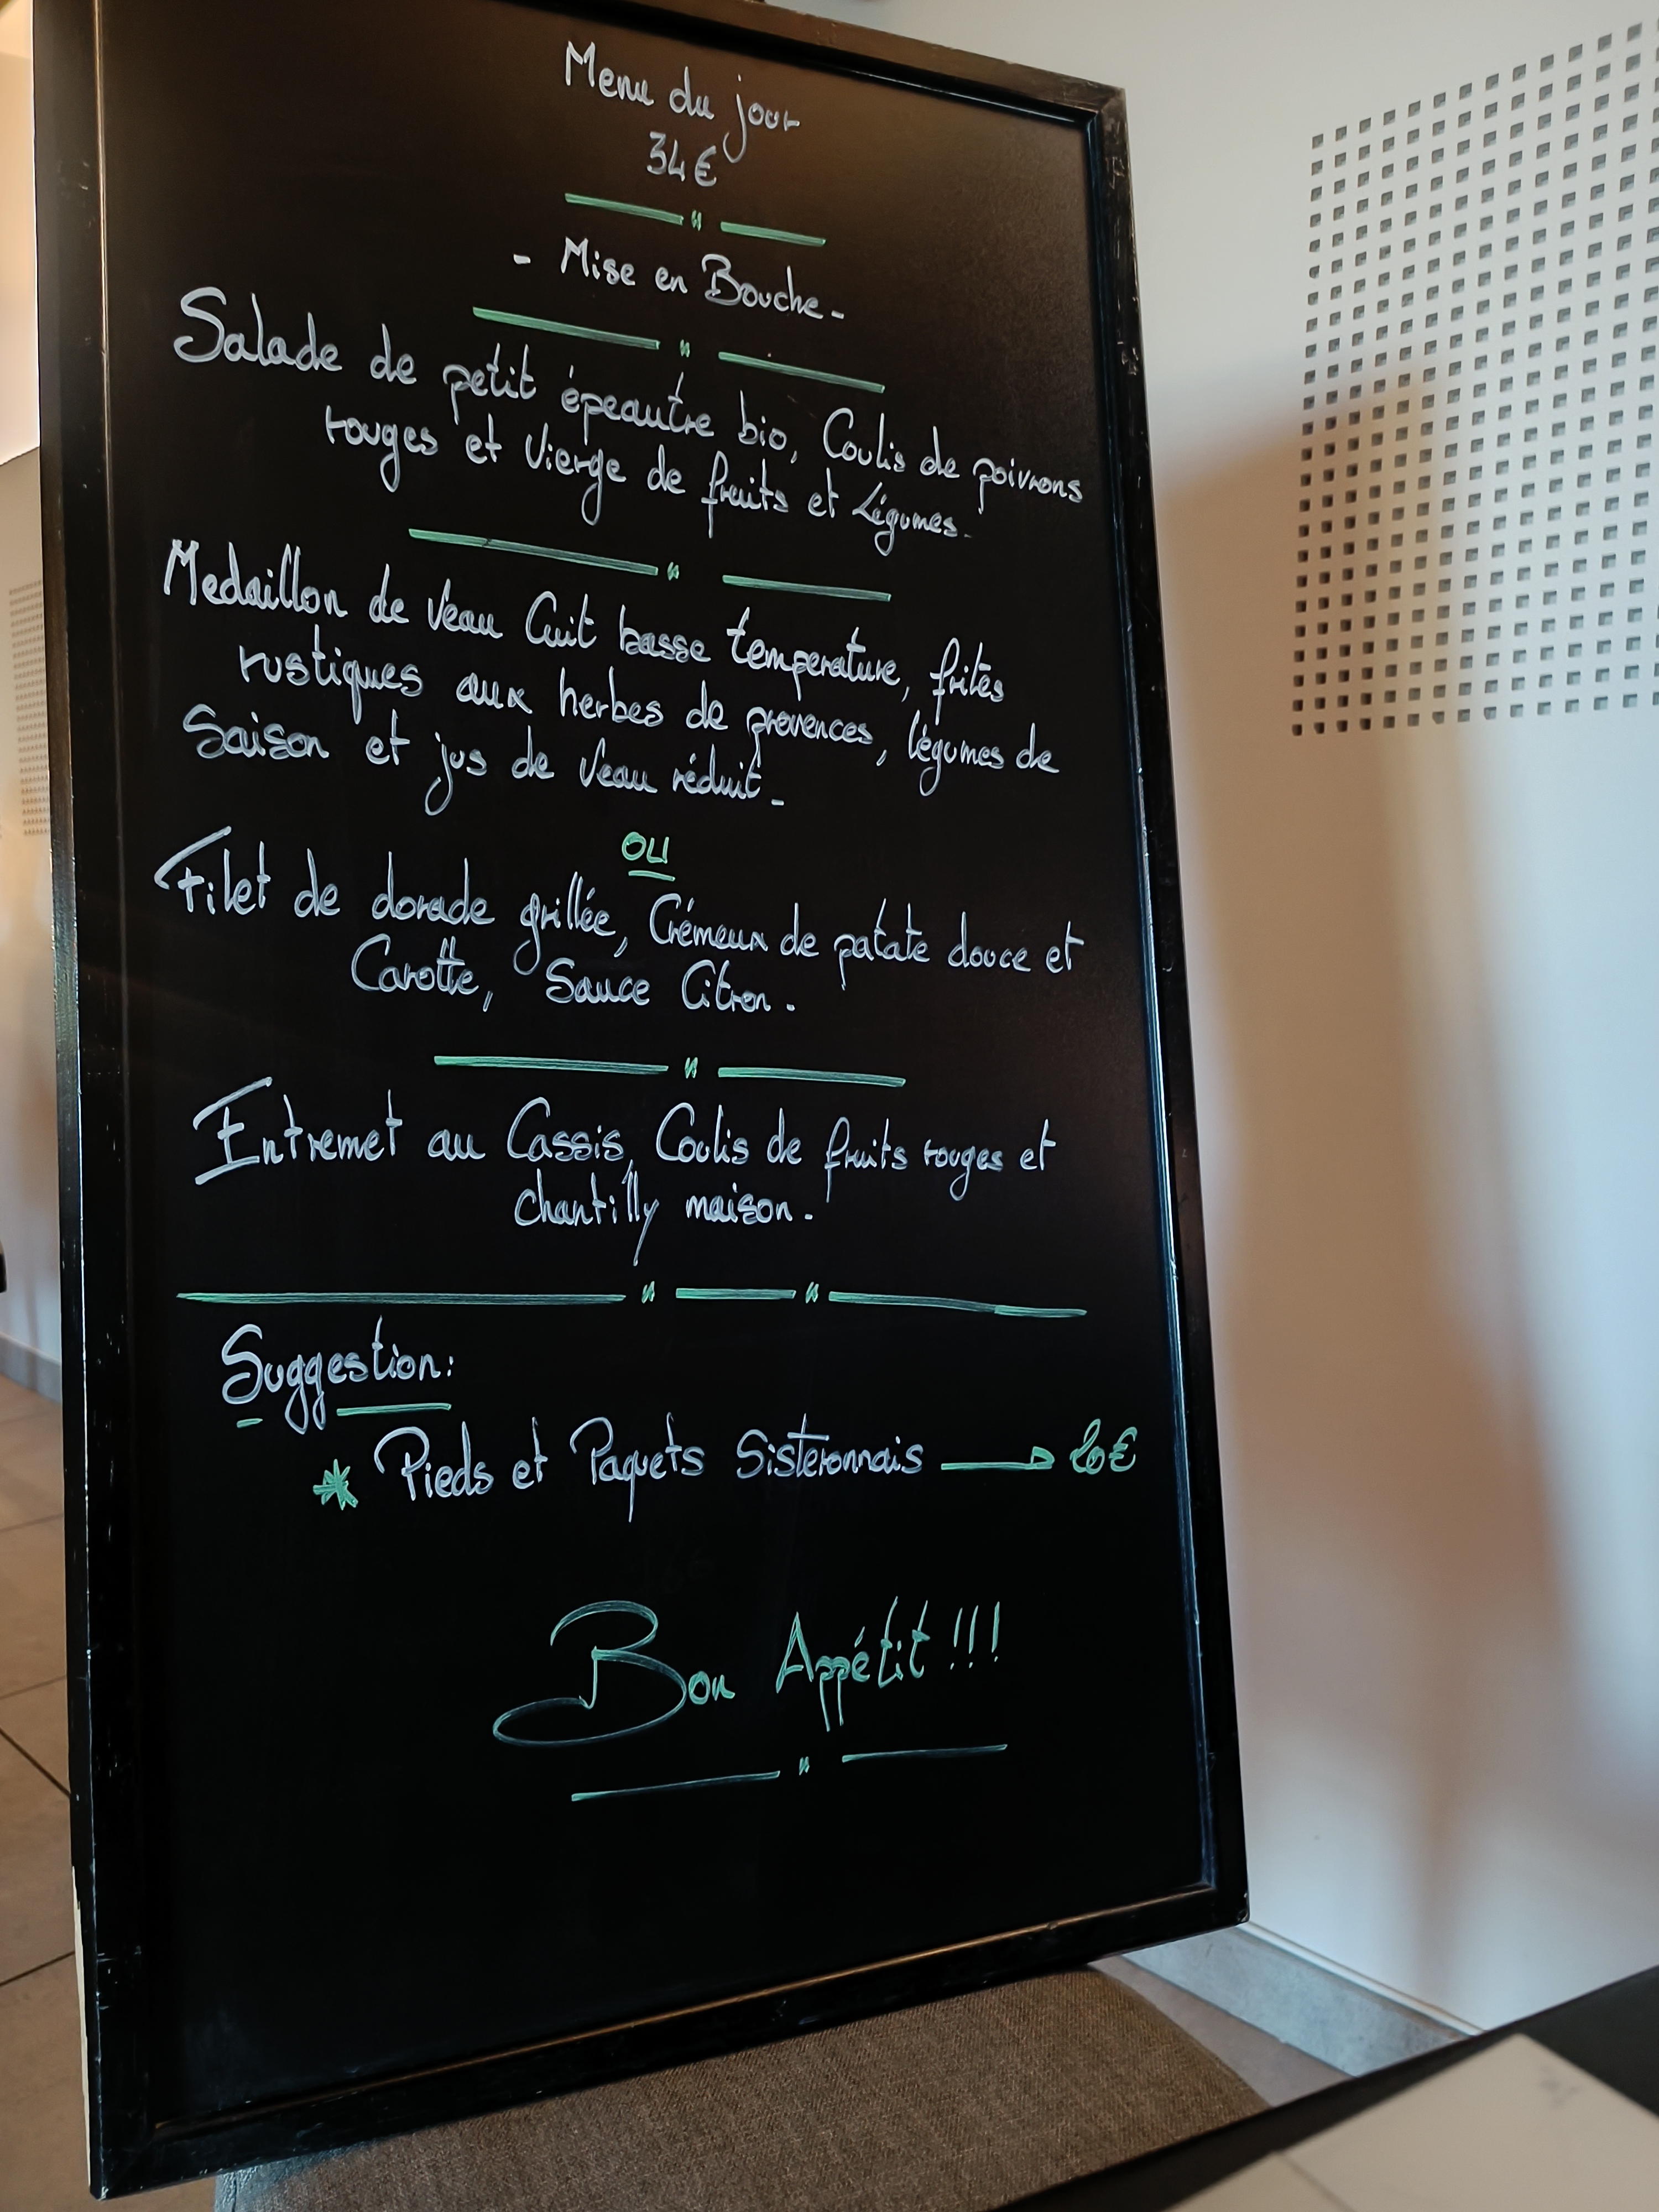 Menu du jour
34€
- Mise en Bouche -
Salade de petit épeautre bio, Coulis de poivrons
rouges et Vierge de fruits et Légumes.
Medaillon de Veau Cuit basse temperature, frites
rustiques aux herbes de provences, légumes de
Saison et jus de Veau réduit.
OU
Filet de dorade grillée, Crémeux de patate douce et
Carotte, Sauce Citron.
Entremet au Cassis, Coulis de fruits rouges et
chantilly maison.
Suggestion:
* Pieds et Paquets Sisteronnais → 20€
Bon Appétit !!!